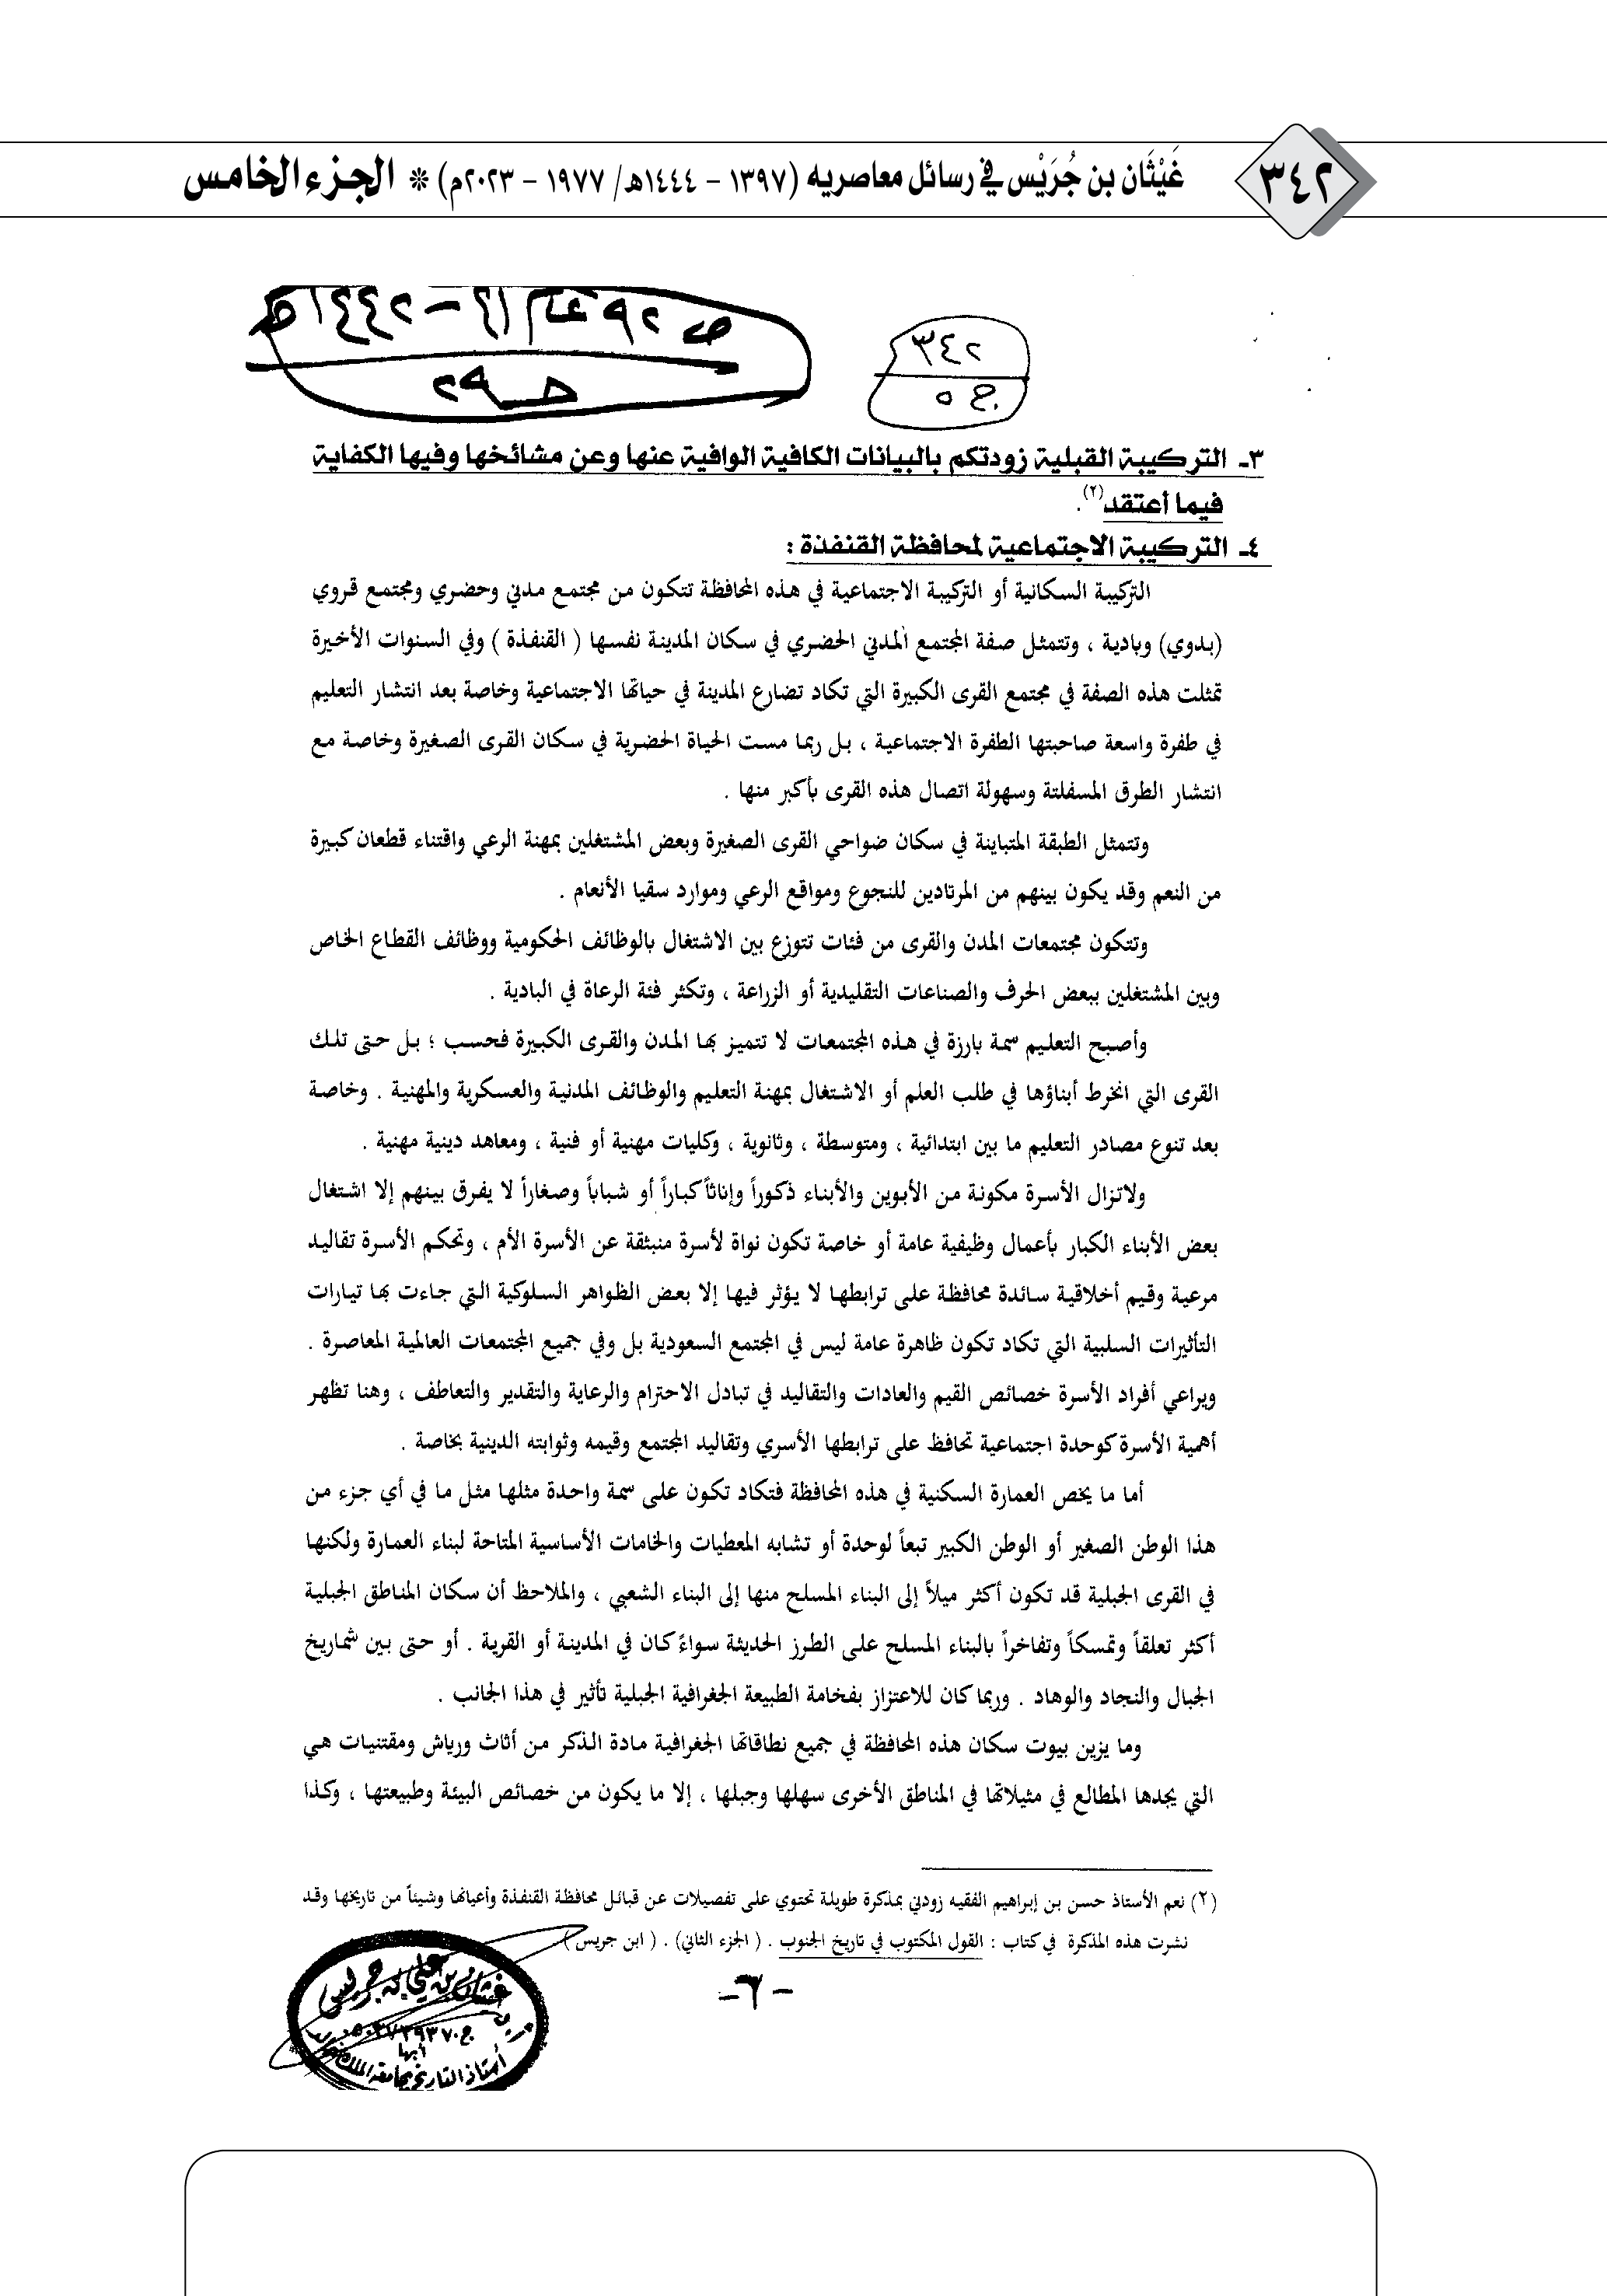 ٣٤٢
غَيْثَان بن جُرَيْس في رسائل معاصريه (١٣٩٧ - ١٤٤٤هـ/ ١٩٧٧ - ٢٠٢٣م) * الجزء الخامس
ص ٩٢ عام ٢١ - ١٤٤٢هـ
٣٤٢
ج ٥
٣- التركيبة القبلية زودتكم بالبيانات الكافية الوافية عنها وعن مشائخها وفيها الكفاية
فيما أعتقد(٢).
٤- التركيبة الاجتماعية لمحافظة القنفذة :
التركيبة السكانية أو التركيبة الاجتماعية في هذه المحافظة تتكون من مجتمع مدني وحضري ومجتمع قروي
(بدوي) وبادية ، وتتمثل صفة المجتمع المدني الحضري في سكان المدينة نفسها ( القنفذة ) وفي السنوات الأخيرة
تمثلت هذه الصفة في مجتمع القرى الكبيرة التي تكاد تضارع المدينة في حياتها الاجتماعية وخاصة بعد انتشار التعليم
في طفرة واسعة صاحبتها الطفرة الاجتماعية ، بل ربما مست الحياة الحضرية في سكان القرى الصغيرة وخاصة مع
انتشار الطرق المسفلتة وسهولة اتصال هذه القرى بأكبر منها .
وتتمثل الطبقة المتباينة في سكان ضواحي القرى الصغيرة وبعض المشتغلين بمهنة الرعي واقتناء قطعان كبيرة
من النعم وقد يكون بينهم من المرتادين للنجوع ومواقع الرعي وموارد سقيا الأنعام .
وتتكون مجتمعات المدن والقرى من فئات تتوزع بين الاشتغال بالوظائف الحكومية ووظائف القطاع الخاص
وبين المشتغلين ببعض الحرف والصناعات التقليدية أو الزراعة ، وتكثر فئة الرعاة في البادية .
وأصبح التعليم سمة بارزة في هذه المجتمعات لا تتميز بها المدن والقرى الكبيرة فحسب ؛ بل حتى تلك
القرى التي انخرط أبناؤها في طلب العلم أو الاشتغال بمهنة التعليم والوظائف المدنية والعسكرية والمهنية . وخاصة
بعد تنوع مصادر التعليم ما بين ابتدائية ، ومتوسطة ، وثانوية ، وكليات مهنية أو فنية ، ومعاهد دينية مهنية .
ولاتزال الأسرة مكونة من الأبوين والأبناء ذكوراً وإناثاً كباراً أو شباباً وصغاراً لا يفرق بينهم إلا اشتغال
بعض الأبناء الكبار بأعمال وظيفية عامة أو خاصة تكون نواة لأسرة منبثقة عن الأسرة الأم ، وتحكم الأسرة تقاليد
مرعية وقيم أخلاقية سائدة محافظة على ترابطها لا يؤثر فيها إلا بعض الظواهر السلوكية التي جاءت بها تيارات
التأثيرات السلبية التي تكاد تكون ظاهرة عامة ليس في المجتمع السعودية بل وفي جميع المجتمعات العالمية المعاصرة .
ويراعي أفراد الأسرة خصائص القيم والعادات والتقاليد في تبادل الاحترام والرعاية والتقدير والتعاطف ، وهنا تظهر
أهمية الأسرة كوحدة اجتماعية تحافظ على ترابطها الأسري وتقاليد المجتمع وقيمه وثوابته الدينية بخاصة .
أما ما يخص العمارة السكنية في هذه المحافظة فتكاد تكون على سمة واحدة مثلها مثل ما في أي جزء من
هذا الوطن الصغير أو الوطن الكبير تبعاً لوحدة أو تشابه المعطيات والخامات الأساسية المتاحة لبناء العمارة ولكنها
في القرى الجبلية قد تكون أكثر ميلاً إلى البناء المسلح منها إلى البناء الشعبي ، والملاحظ أن سكان المناطق الجبلية
أكثر تعلقاً وتمسكاً وتفاخراً بالبناء المسلح على الطرز الحديثة سواءً كان في المدينة أو القرية . أو حتى بين شماريخ
الجبال والنجاد والوهاد . وربما كان للاعتزاز بفخامة الطبيعة الجغرافية الجبلية تأثير في هذا الجانب .
وما يزين بيوت سكان هذه المحافظة في جميع نطاقاتها الجغرافية مادة الذكر من أثاث ورياش ومقتنيات هي
التي يجدها المطالع في مثيلاتها في المناطق الأخرى سهلها وجبلها ، إلا ما يكون من خصائص البيئة وطبيعتها ، وكذا
(٢) نعم الأستاذ حسن بن إبراهيم الفقيه زودني بمذكرة طويلة تحتوي على تفصيلات عن قبائل محافظة القنفذة وأعيانها وشيئاً من تاريخها وقد
نشرت هذه المذكرة في كتاب : القول المكتوب في تاريخ الجنوب . ( الجزء الثاني) . ( ابن جريس ) .
-٦-
غيثان بن علي بن جريس
أبها
أستاذ التاريخ بجامعة الملك